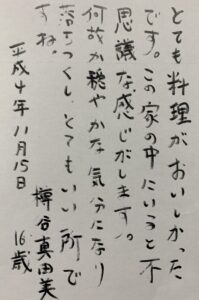 とても料理がおいしかった
です。この家の中にいると不
思議な感じがします。
何故か穏やかな気分になり
落ちつくし、とてもいい所で
すね。
平成4年11月15日
樽谷真由美
16歳